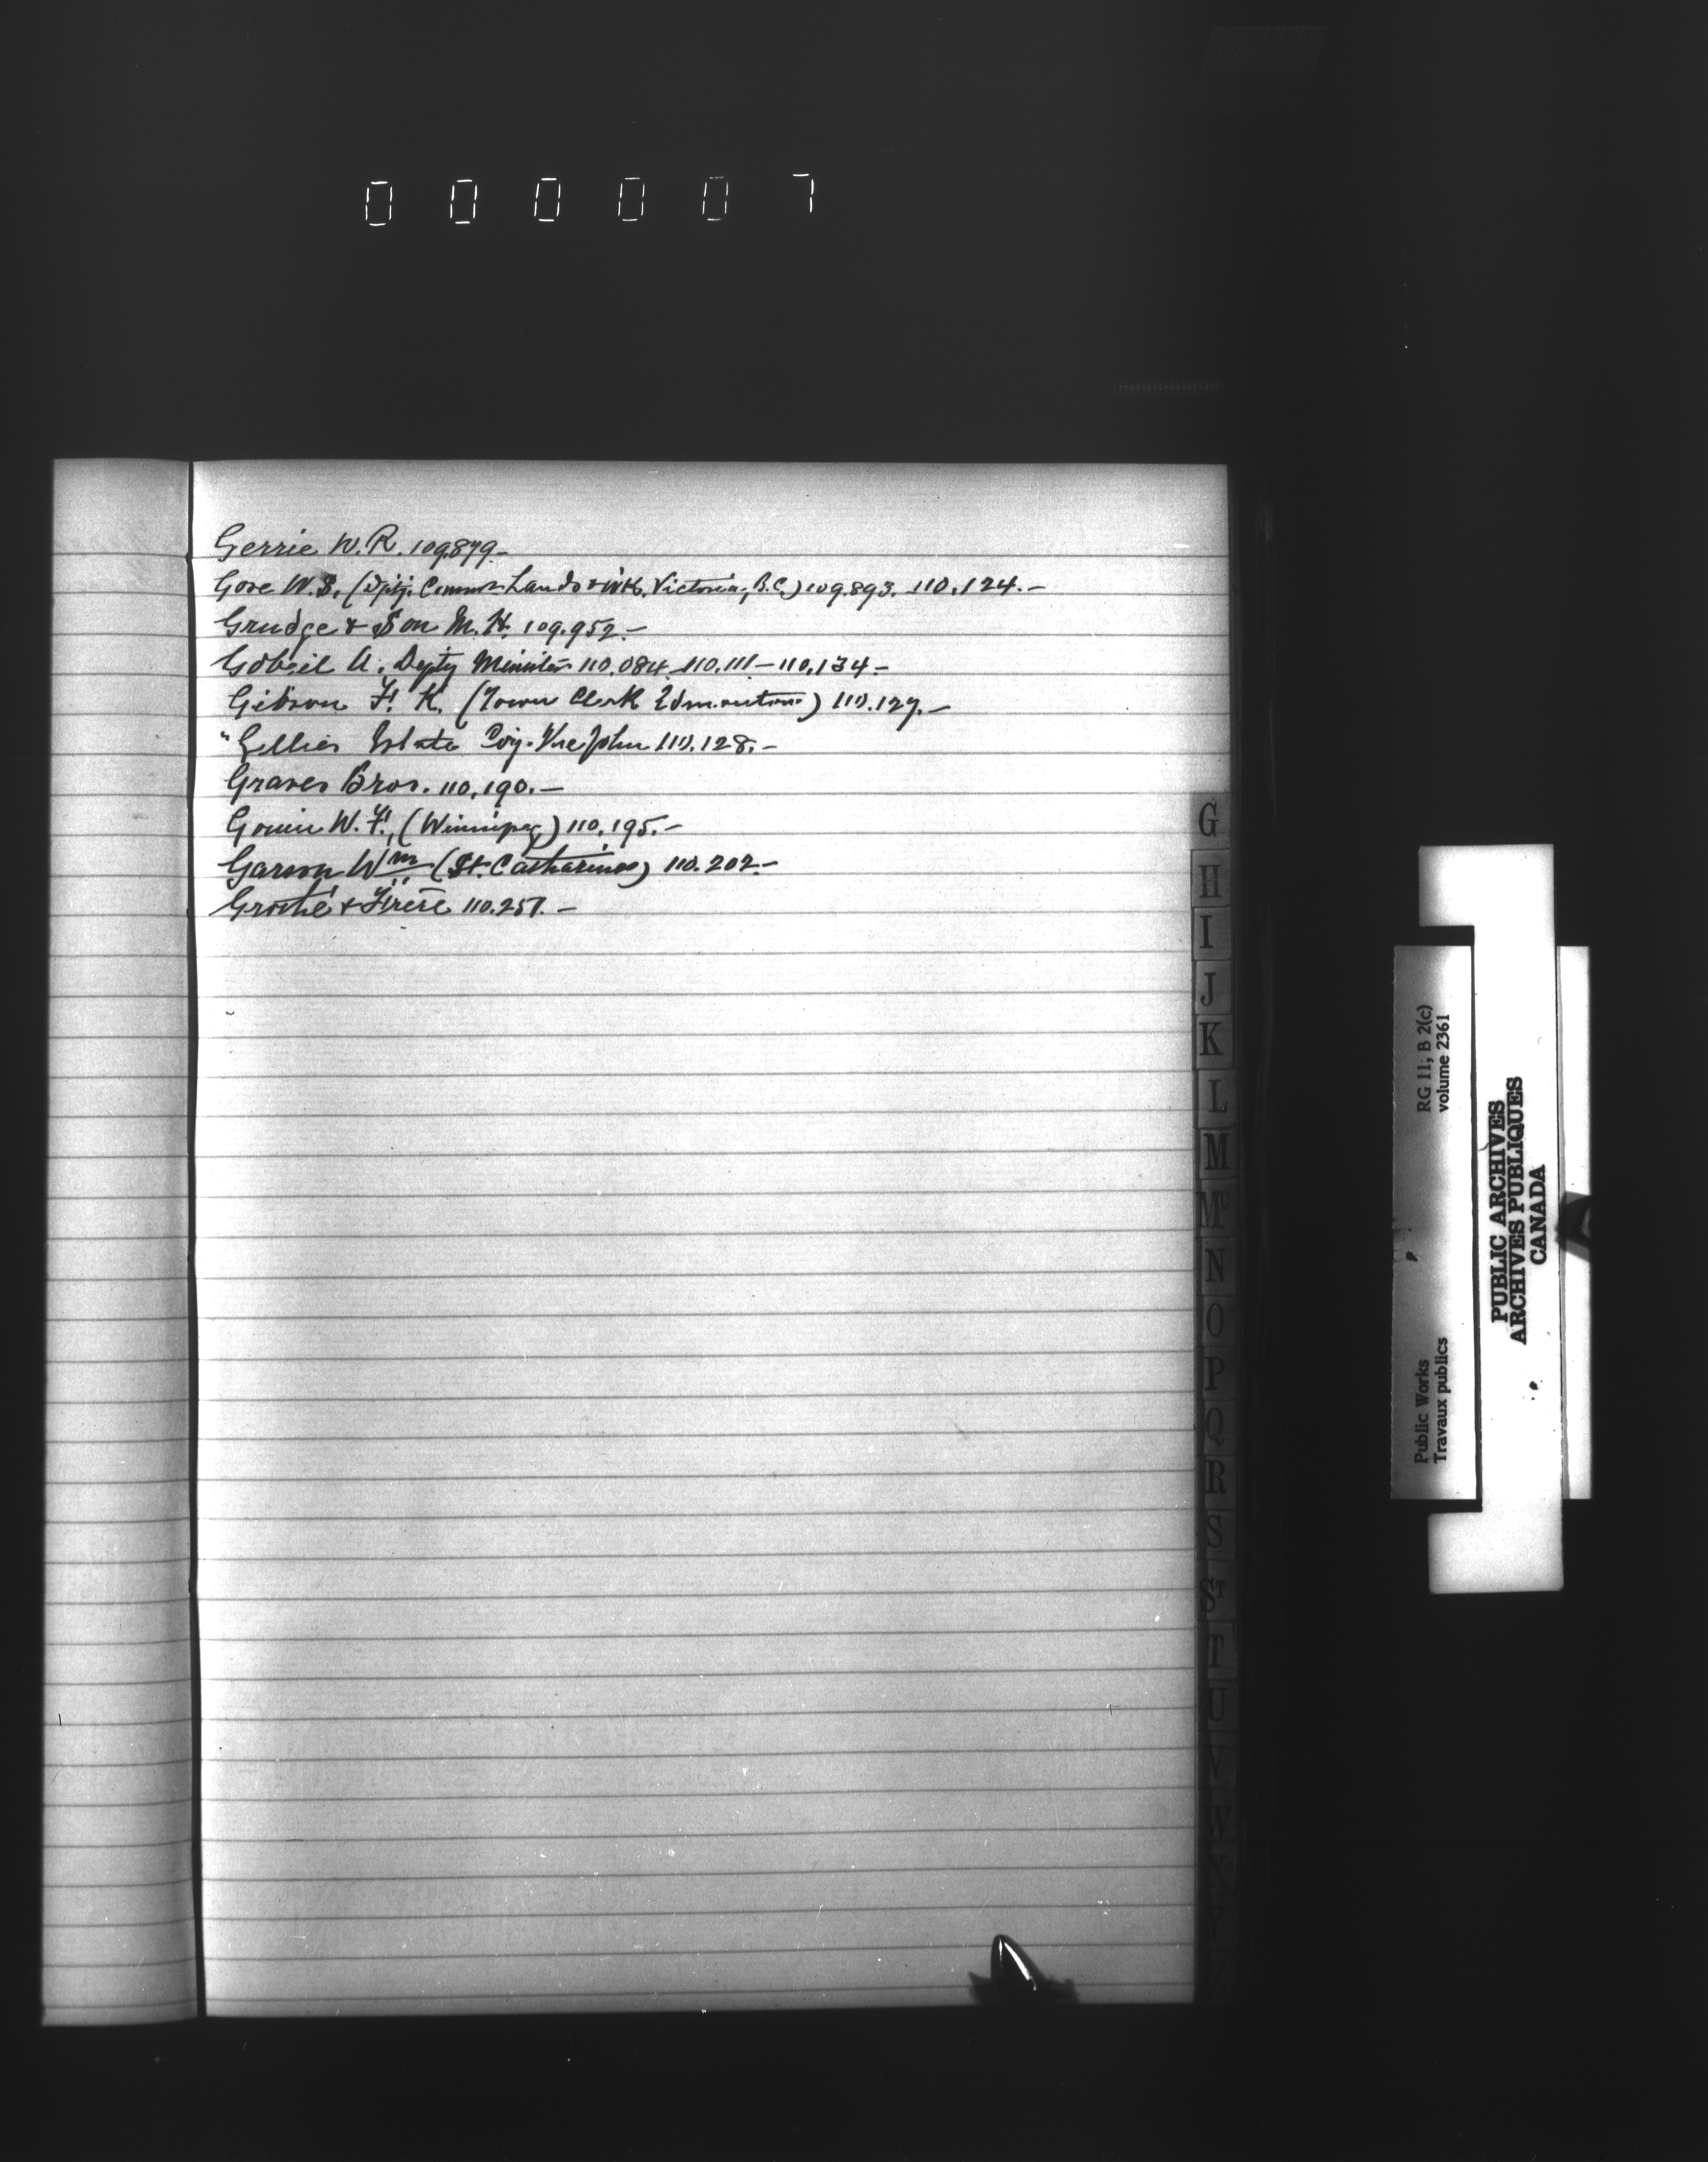 000007
Gerrie W. R. 109.879.-
Gore W. S. (Dpty. Commr Lands & Wks. Victoria, B.C.) 109.893. 110.124.-
Grudge & Son M. H. 109.952.-
Gobeil A. Depty Minister 110.084. 110.111-110.134-
Gibson F. K. (Town Clerk Edmonton) 110.127.-
"Gillies Estate Coy. The John 110.128.-
Graves Bros. 110.190.-
Gouin W. F., (Winnipeg) 110.195.-
Garson Wm (St. Catharines) 110.202-
Grothé & Frère 110.257.-
G
H
I
J
K
L
M
Mc
N
O
P
Q
R
S
ST
T
U
V
W
X
Y
Z
Public Works RG 11, B 2(c)
Travaux publics volume 2361
PUBLIC ARCHIVES
ARCHIVES PUBLIQUES
CANADA